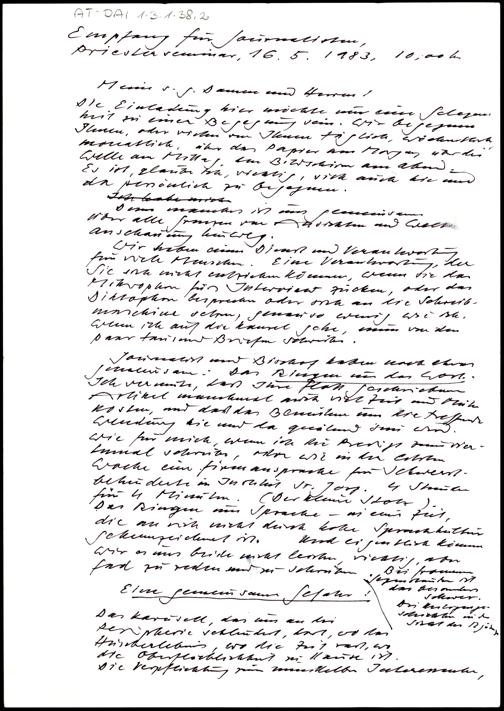 AT-DAI 1.3.1.38.2
Empfang für Journalisten,
Priesterseminar, 16.5.1983, 10,00 h
Meine s.g. Damen und Herren!
Die Einladung hier möchte nur eine Gelegen-
heit zu einer Begegnung sein. Wir begegnen
Ihnen, oder vielen von Ihnen täglich, wöchentlich
monatlich, über das Papier am Morgen, über die
Welle am Mittag, am Bildschirm am Abend.
Es ist, glaube ich, wichtig, sich auch hie und
da persönlich zu begegnen.
Ich habe mich
Denn manches ist uns gemeinsam
über alle Grenzen von und Welt-
anschauung hinweg.
Wir haben einen Dienst und Verantwortung
für viele Menschen. Eine Verantwortung, der
Sie sich nicht entziehen können, wenn Sie das
Mikrophon fürs Interview zücken, oder das
Diktaphon besprechen oder sich an die Schreib-
maschine setzen, genauso wenig wie ich.
Wenn ich auf die Kanzel gehe, einen von den
paar tausend Briefen schreibe.
Journalist und Bischof haben noch etwas
gemeinsam: Das Ringen um das Wort.
Ich vermute, dass Ihre flott geschriebenen
Artikel manchmal auch viel Zeit und Mühe
kosten, und daß das Bemühen um die treffende
Wendung hie und da quälend sein wird.
Wie für mich, wenn ich die Predigt zum vier-
tenmal schreibe, oder wie in der letzten
Woche eine Firmansprache für Schwerst-
behinderte im Institut St. Josef. 4 Stunden
für 4 Minuten. (Der kleine Stolz).
Das Ringen um Sprache – in einer Zeit,
die an sich nicht durch hohe Sprachkultur
gekennzeichnet ist. Und eigentlich können
wir es uns beide nicht leisten, wichtig, aber
fad zu reden und zu schreiben.
Bei frommen
Gegenständen ist
das besonders
schwer.
Bei
schreiben in der
Eine gemeinsame Gefahr!
Das Karussell, das uns an die
Peripherie schleudert, dort, wo das
wo die Zeit rast, wo
die Oberflächlichkeit zu Hause ist.
Die Verpflichtung zum Interessanten,